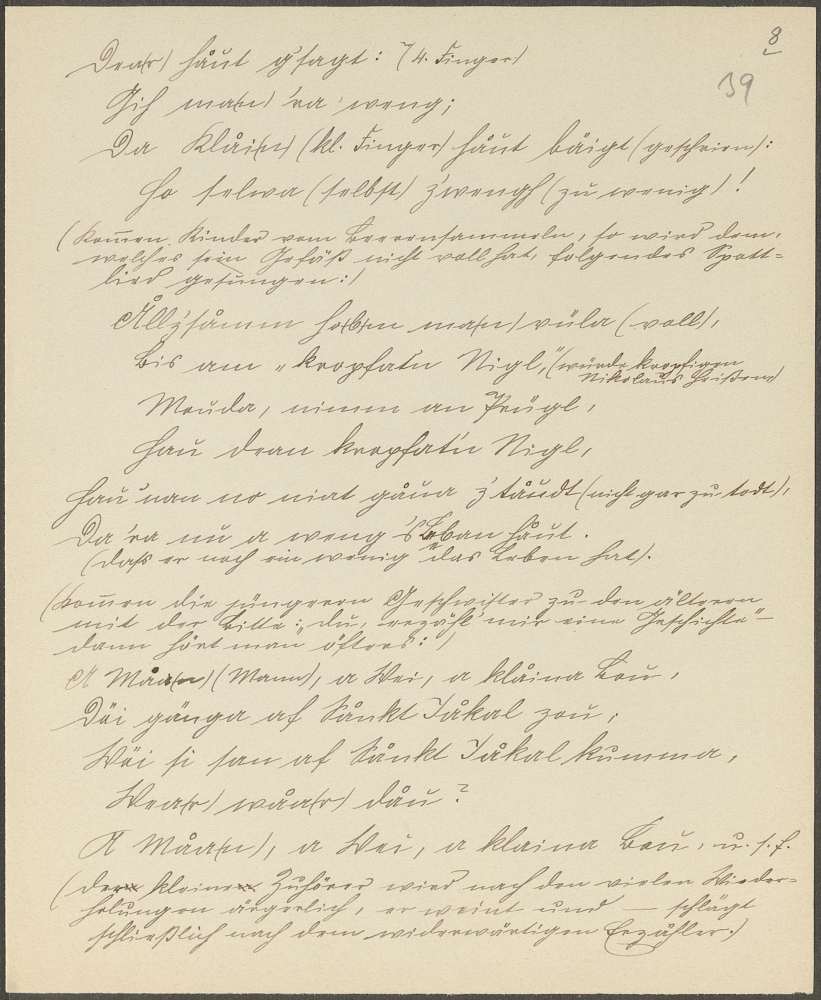 8
39
Dea(r) håut g'sagt: (4. Finger)
Gih ma(n) 'ra weng;
Da Klåi(n) (kl. Finger) håut båigt (geschrien):
Ho selwa (selbst) z'wengh (zu wenig)!
(Kommen Kinder vom Beerensammeln, so wird dem,
welches sein Gefäß nicht voll hat, folgendes Spott-
lied gesungen:)
Åll'z'såmm ho(b)n ma(n) vüla (voll),
Bis am „kropfat'n Nigl," (würde kropfigen
Nikolaus heißen)
Mouda, nimm an Prügl,
Hau dean kropfat'n Nigl,
Hau 'nan no niat gåua z'tåudt (nicht gar zu todt),
Da 'ra nu a weng 's Leban håut.
(daß er noch ein wenig das Leben hat).
(Kommen die jüngeren Geschwister zu den älteren
mit der Bitte: „du, erzähl' mir eine Geschichte" –
dann hört man öfters:)
A Måa(n) (Mann), a Wei, a klåina Bou,
Döi gänga af Sånkt Jåkal zou;
Wöi si san af Sånkt Jåkal kumma,
Wea(r) wåa(r) dåu?
A Måa(n), a Wei, a klaina Bou, u. s. f.
(der kleine Zuhörer wird nach den vielen Wieder-
holungen ärgerlich, er weint und — schlägt
schließlich nach dem widerwärtigen Erzähler.)